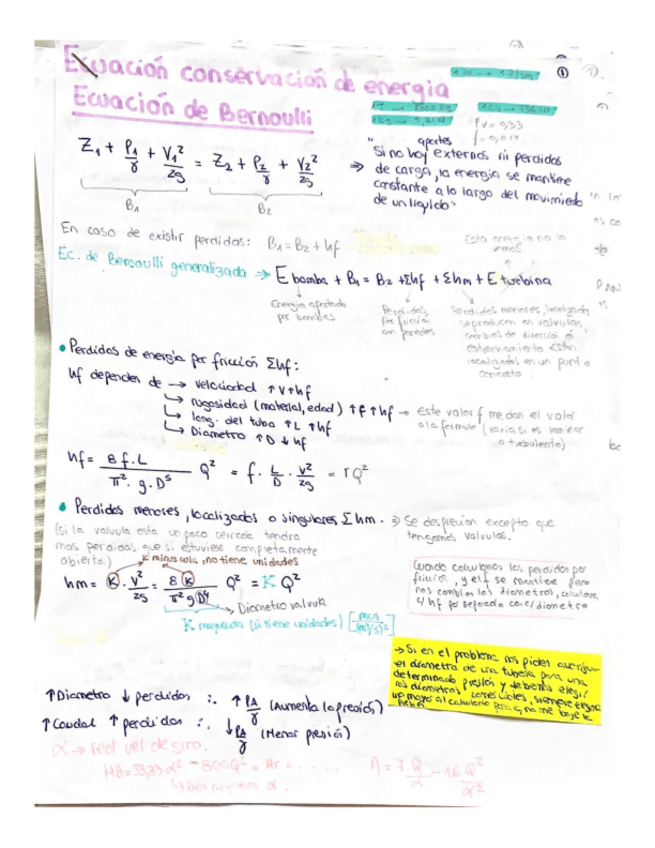 Ecuación conservación de energía
Ecuación de Bernoulli
①
Z₁ + P₁/γ + V₁²/2g = Z₂ + P₂/γ + V₂²/2g
B₁ B₂
"Si no hay aportes externos ni perdidas
de carga, la energía se mantiene
constante a lo largo del movimiento
de un líquido"
En caso de existir perdidas: B₁ = B₂ + hf
Ec. de Bernoulli generalizada → E bomba + B₁ = B₂ + Σhf + Σhm + E turbina
Energía aportada
por bombas
Perdidas
por fricción
con paredes
Perdidas menores, localizadas
se producen en valvulas,
cambios de dirección o
estrechamiento. Están
localizados en un punto
concreto
• Perdidas de energía por fricción Σhf:
hf depende de → velocidad ↑V↑hf
↳ rugosidad (material, edad) ↑f↑hf → este valor f me dan el valor
o la formula (varia si es laminar
o turbulento)
↳ long. del tubo ↑L ↑hf
↳ Diametro ↑D ↓hf
hf = 8f.L/π².g.D⁵ Q² = f . L/D . V²/2g = rQ²
• Perdidas menores, localizadas o singulares Σhm. ⇒ Se desprecian excepto que
tengamos valvulas.
(si la valvula esta un poco cerrada tendra
mas perdidas que si estuviese completamente
abierta.)
K minuscula, no tiene unidades
hm = K . V²/2g = 8K/π²gD⁴ Q² = K Q²
Diametro valvula
K mayuscula (si tiene unidades) [mca/(m³/s)²]
Cuando calculamos las perdidas por
fricción, y el f se mantiene pero
nos cambian los diametros, calcular
hf por separado diametro
→ Si en el problema nos piden averiguar
el diametro de una tuberia para una
determinada presión y debemos elegir
diametros comerciales, siempre
↑Diametro ↓perdidas ∴ ↑PA/γ (Aumenta la presión)
↑Caudal ↑perdidas ∴ ↓PA/γ (Menor presión)
α → red vel de giro.
HB = 33,33α² - 800Q² = Hr = .....
↳ Despejamos α.